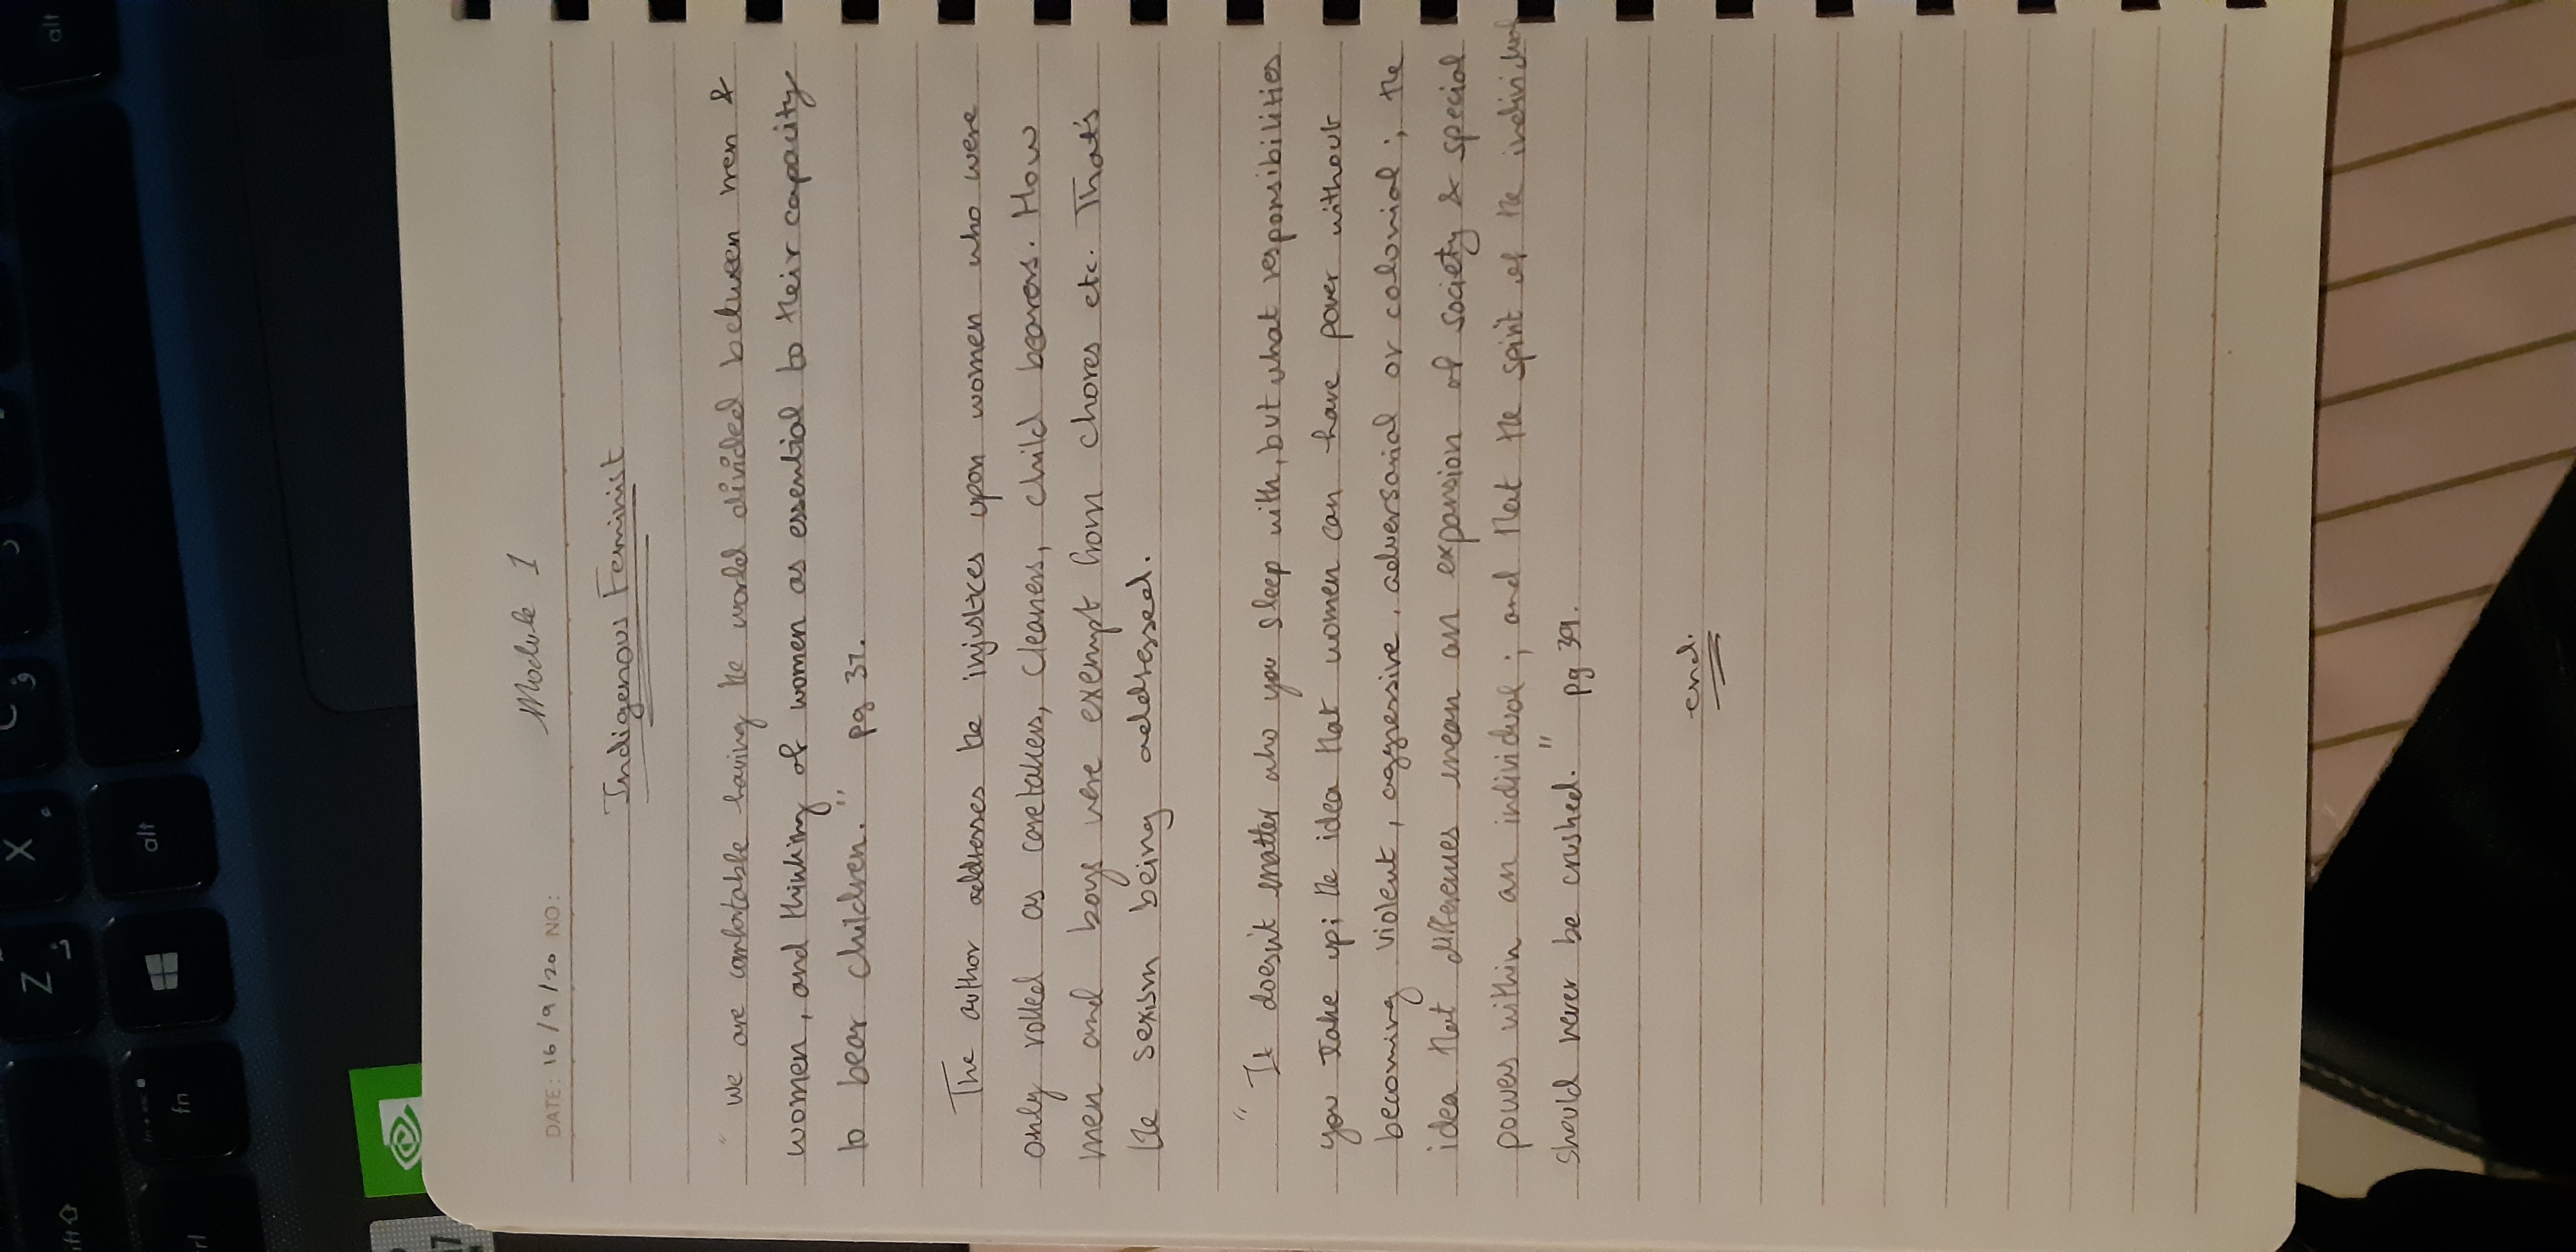 Z
X
alt
fn
alt
Module 1
DATE: 16/9/20 NO:
Indigenous Feminist
"We are comfortable having the world divided between men &
women, and thinking of women as essential to their capacity
to bear children." pg 37.
The author addresses the injustices upon women who were
only rolled as caretakers, cleaners, child bearers. How
men and boys were exempt from chores etc. That's
the sexism being addressed.
"It doesn't matter who you sleep with, but what responsibilities
you take up; the idea that women can have power without
becoming violent, aggressive, adversarial or colonial; the
idea that differences mean an expansion of society & special
powers within an individual; and that the spirit of the individual
should never be crushed." pg 39.
end.